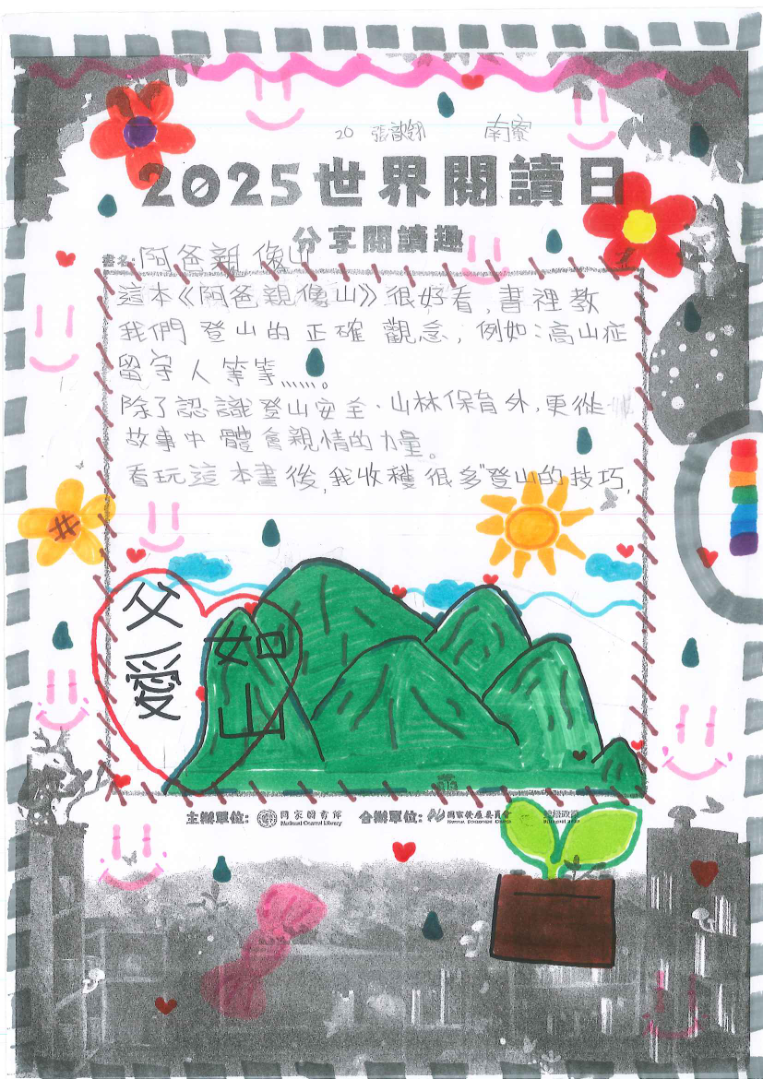 20 張 南寮
2025世界閱讀日
分享閱讀趣
書名:阿爸親像山
這本《阿爸親像山》很好看,書裡教
我們登山的正確觀念,例如:高山症
留守人等等……。
除了認識登山安全、山林保育外,更從
故事中體會親情的力量。
看玩這本書後,我收穫很多"登山的技巧,
父愛
如山
主辦單位: 國家圖書館 National Central Library 合辦單位: 國家發展委員會